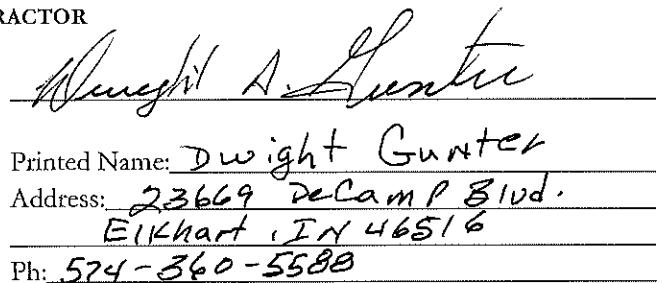 RACTOR
Dwight A. Gunter
Printed Name: Dwight Gunter
Address: 23669 DeCamp Blvd.
Elkhart, IN 46516
Ph: 574-360-5588